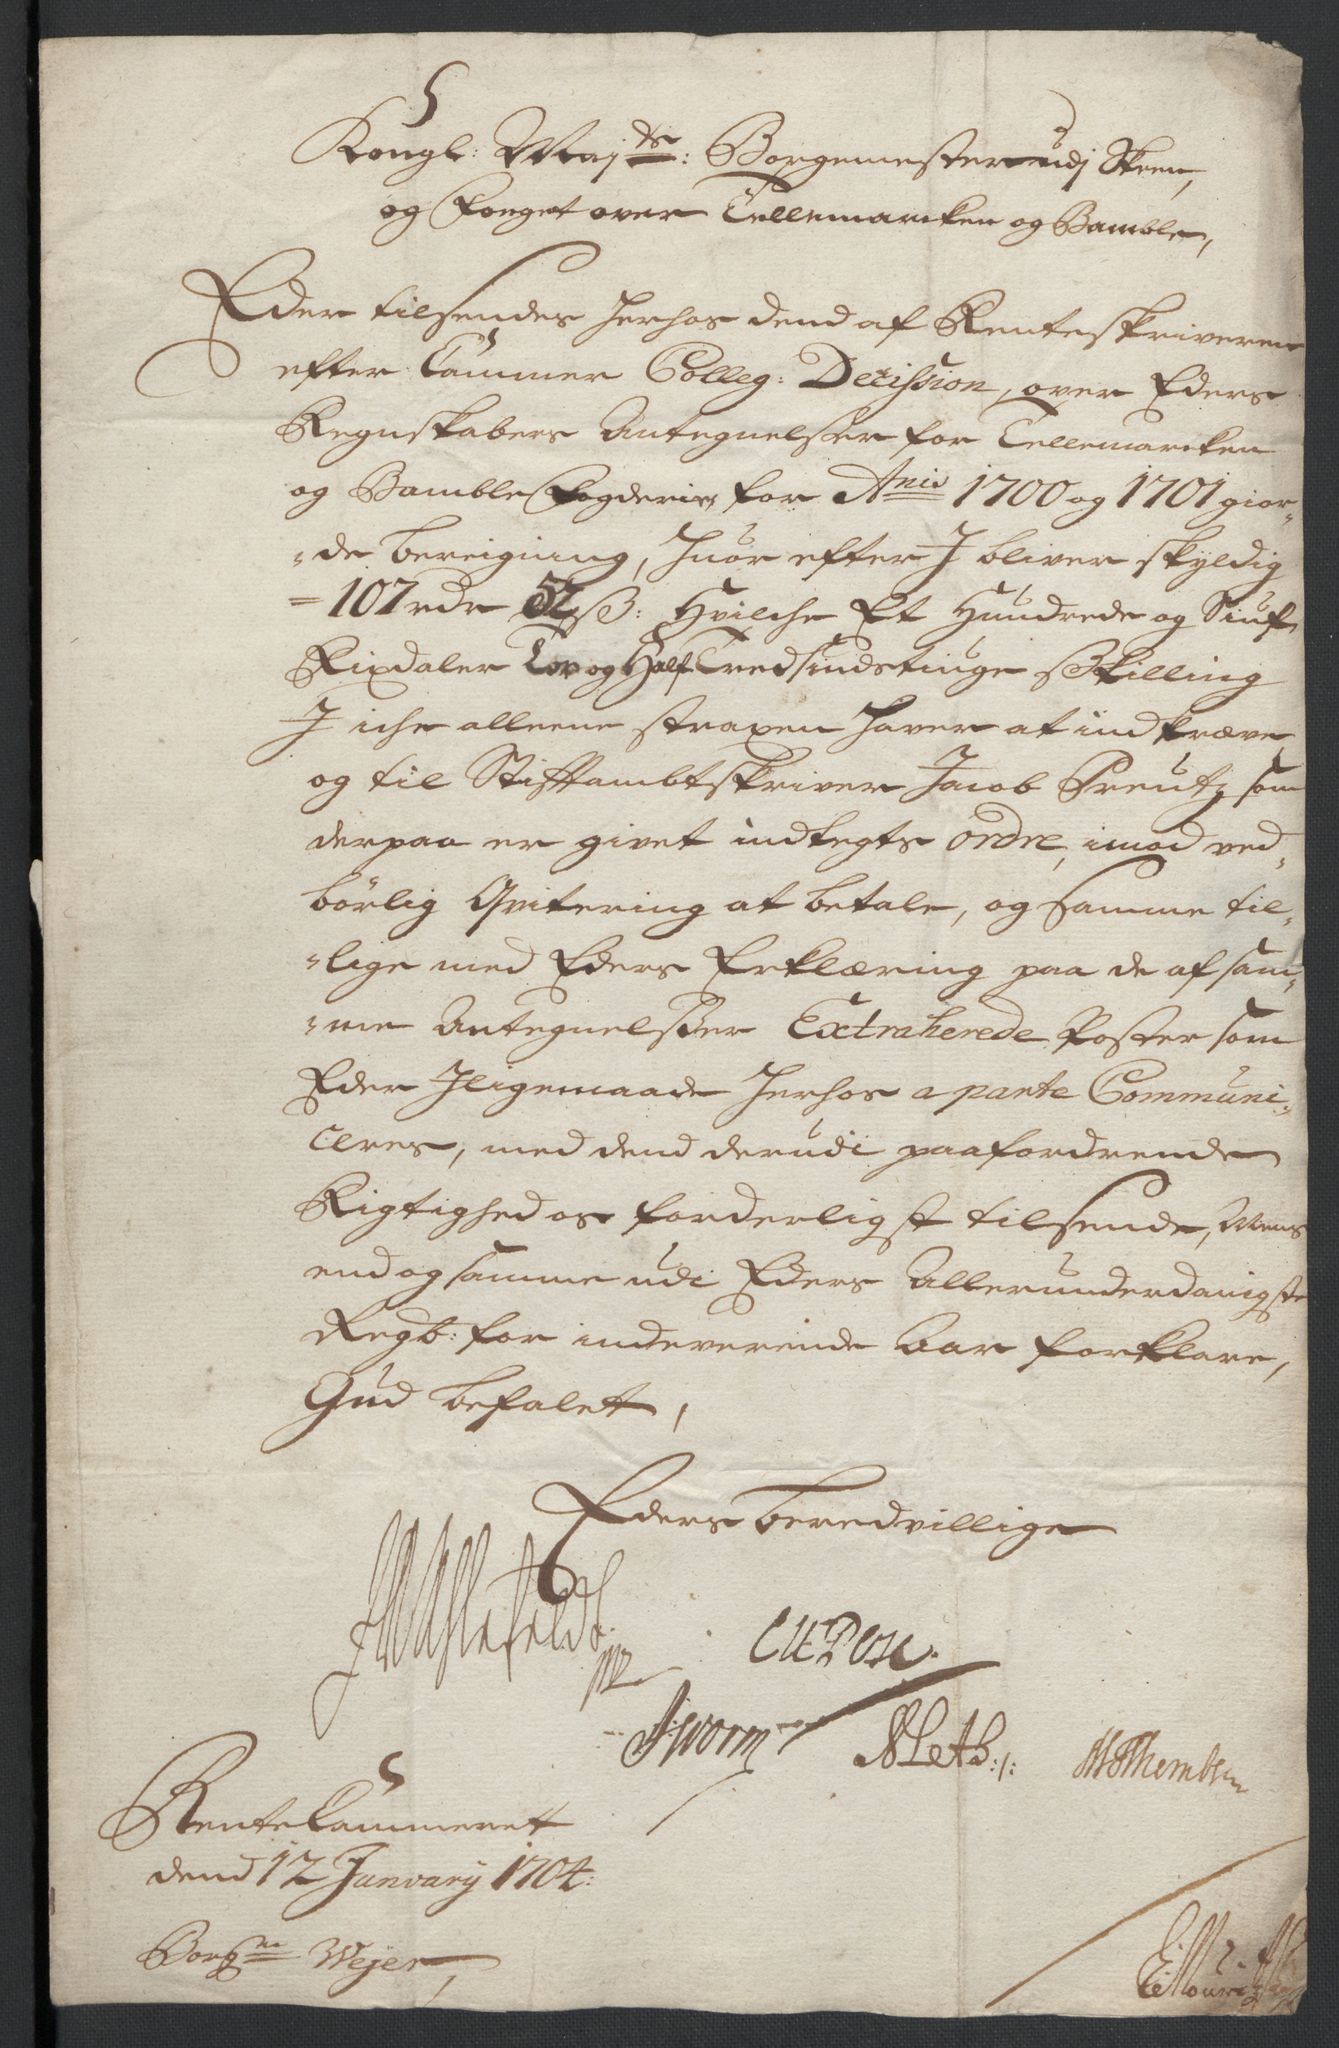 Kongl: Maj ds: Borgemester udj Skeen,
og Foeget over Tellemarcken og Bamble,
Eder tilsendes herhos dend af Renteskriveren
efter Cammer Colleg: Decission, over Eders
Regnskabers Antegnelser for Tellemarcken
og Bamble Fogderie, for Anis 1700 og 1701 gior-
-de bereigning, huor efter I bliver skyldig
=107 rdr 52 ß: Hvilche Et Hundrede og Siuf
Rixdaler Tov og Half Tredsindstiuge Skilling
I iche alleene straxen haver at indkræve
og til Stiftambtskriver Jacob Preutz som
derpaa er givet indtegts ordre, imod ved-
börlig Qvitering at betale, og samme til-
-lige med Eders Erklæring paa de af sam-
-me Antegnelsser Extraherede Poster som
Eder Iligemaade herhos a parte Communi-
ceres, med dend derudi paafordrende
Rigtighed os forderligst tilsende, Mens
end og samme udi Eders Allerunderdanigste
Regb: for indeverende Aar forklare,
Gud befalet,
Eders beredvillige
Ahlefeldt
Worm
Meth:
Rente Cammeret
dend 12 January 1704:
Borgm Wejer,